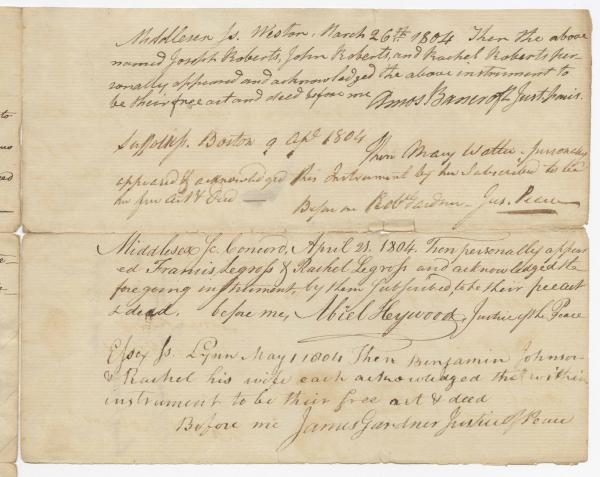 Middlesex Ss. Weston, March 26th 1804 Then the above
named Joseph Roberts, John Roberts, and Rachel Roberts per-
sonally appeared and acknowledged the above instrument to
be their free act and deed before me Amos Bancroft Just. Pacis.
Suffolk Ss. Boston 9 Apl. 1804
Then Mary personally
appeared & acknowledged this Instrument by her Subscribed to be
her free Act & Deed
Before me Robt Gardner Jus. Peace
Middlesex Sc. Concord, April 28. 1804. Then personally appear
ed Francis Legross & Rachel Legross and acknowledged the
foregoing instrument, by them subscribed, to be their free act
& deed. before me, Abiel Heywood, Justice of the Peace
Essex Ss. Lynn May 1 1804 Then Benjamin Johnson
& Rachel his wife each acknowledged the within
instrument to be their free act & deed
Before me James Gardner Justice of Peace